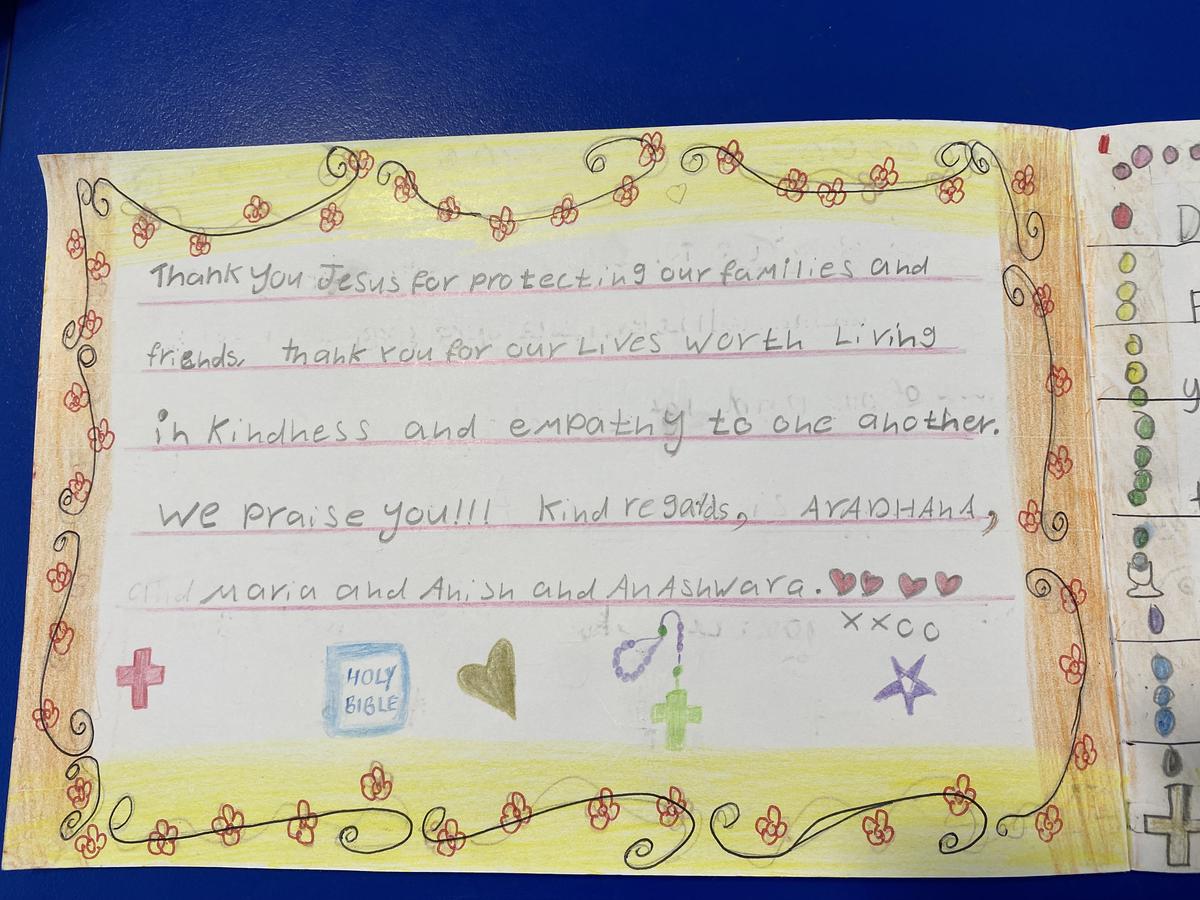 Thank you Jesus for protecting our families and
friends, thank you for our Lives worth Living
in kindness and empathy to one another.
We praise you!!! Kind regards, ArADHAnA,
and Maria and Anish and AnAshwara.
xxoo
HOLY
BIBLE
D
y